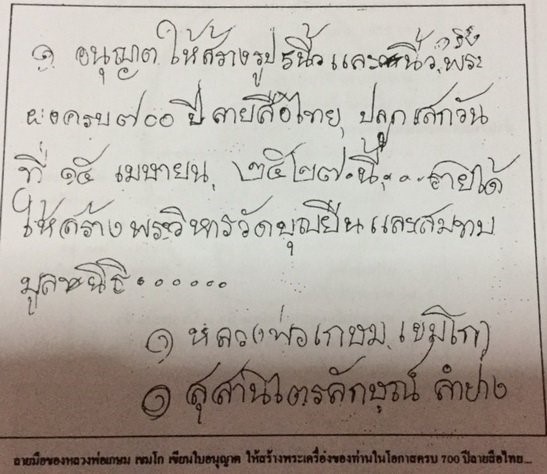 ๑ อนุญาต ให้สร้างรูปนี้ และนี้ว พระ
ผงครบ ๗๐๐ ปี ลายสือไทย ปลุกเสกวัน
ที่ ๑๕ เมษายน ๒๕๒๗ นี้ . . . รายได้
ให้สร้างพระวิหารวัดบุญยืน และสมทบ
มูลนิธิ . . . . . .
๑ หลวงพ่อเกษม เขมโก
๑ สุสานไตรลักษณ์ ลำปาง
ลายมือของหลวงพ่อเกษม เขมโก เขียนใบอนุญาต ให้สร้างพระเครื่องของท่านในโอกาสครบ 700 ปีลายสือไทย...